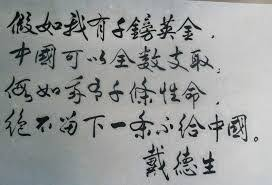 假如我有千鎊英金，
中國可以全數支取；
假如我有千條性命，
絕不留下一条不給中國。
戴德生